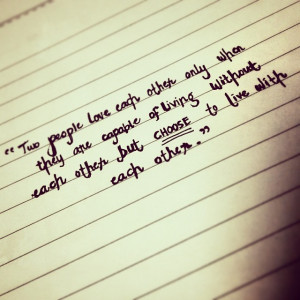 “Two people love each other only when
they are capable of living without
each other but CHOOSE to live with
each other.”